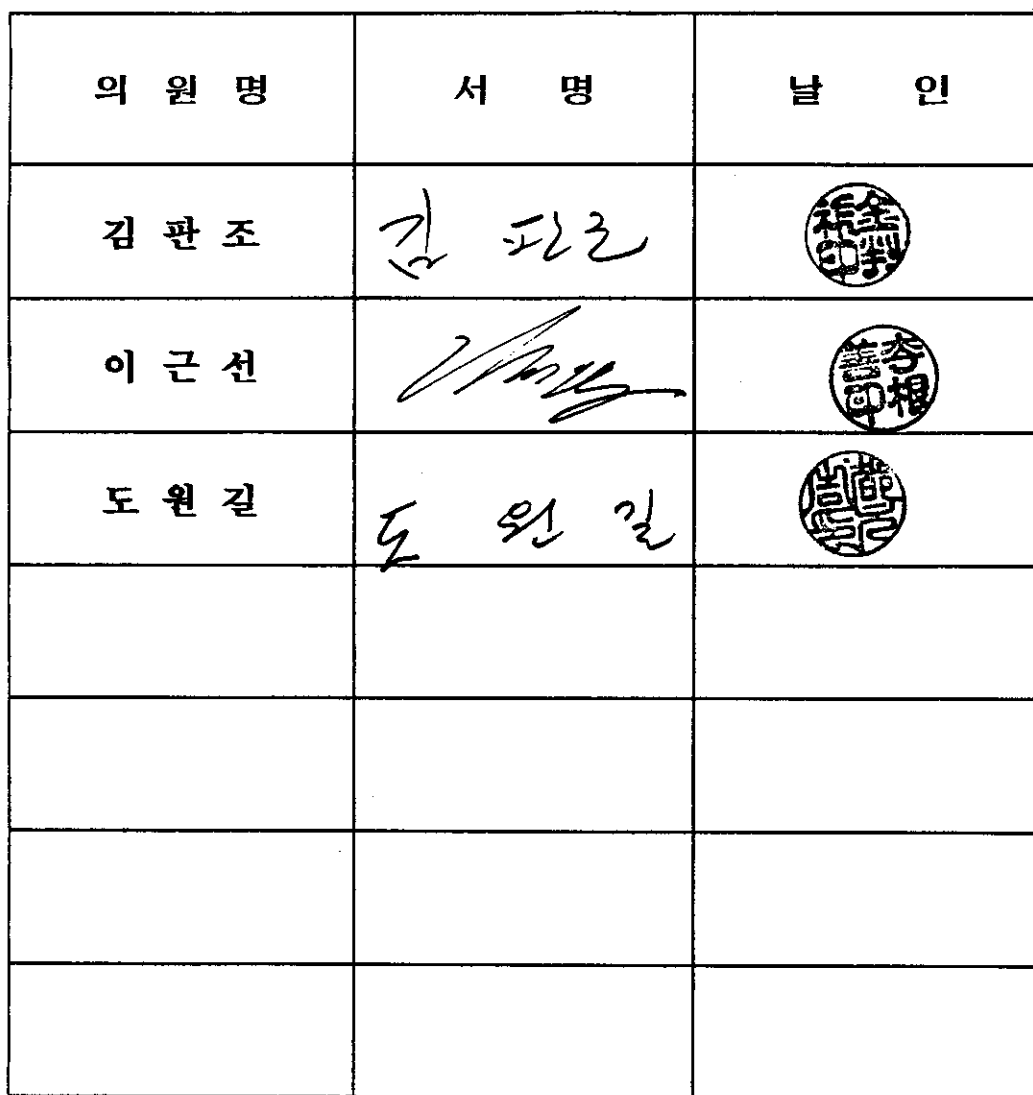 의 원 명 서 명 날 인
김 판 조 김 판조
이 근 선
도 원 길 도 원 길